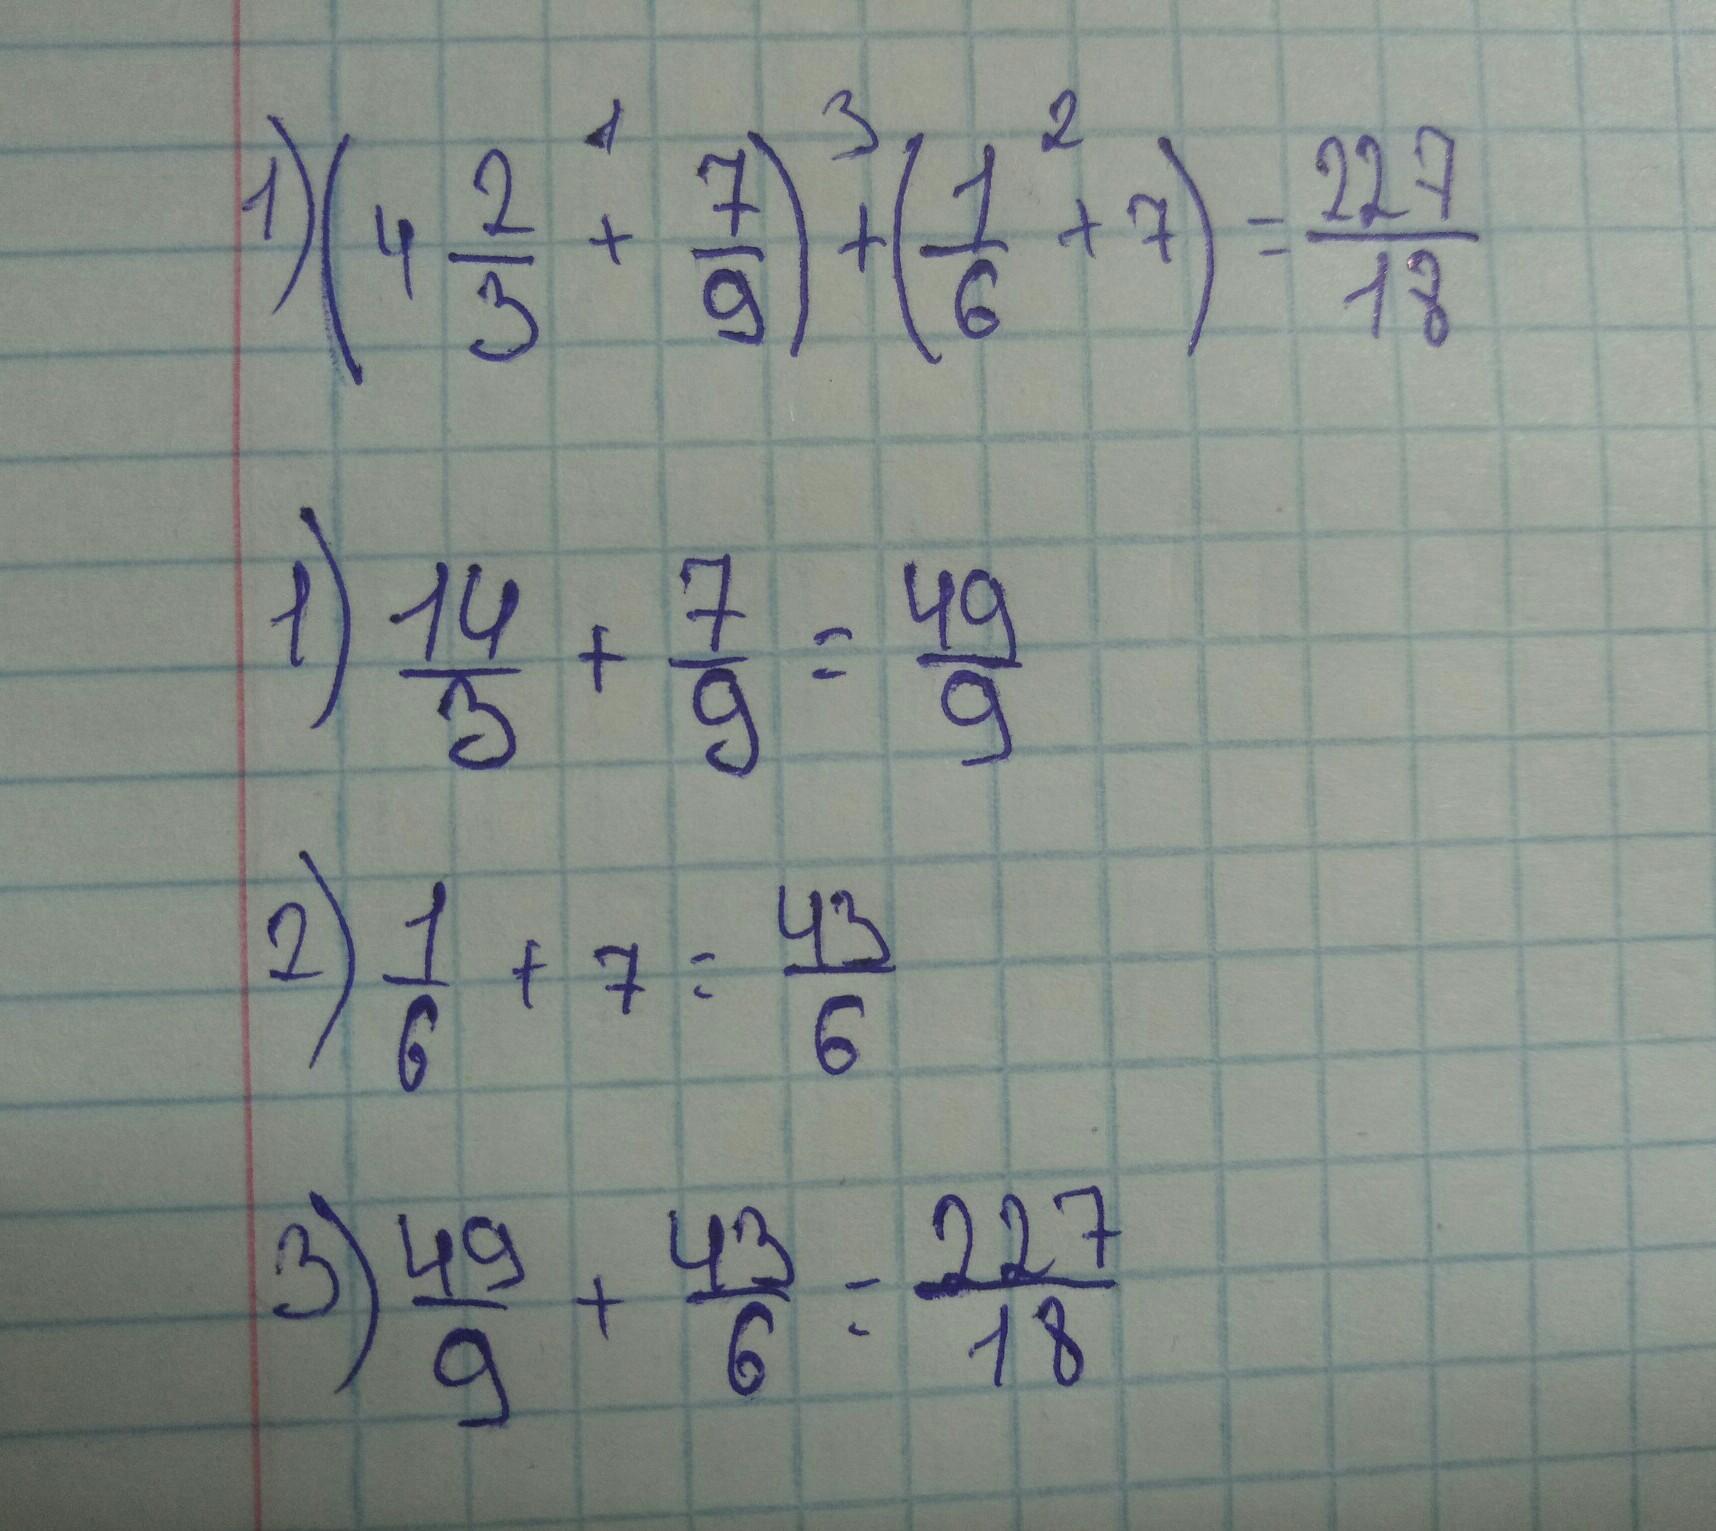 1) (4 2/3 +¹ 7/9) +³ (1/6 +² 7) = 227/18
1) 14/3 + 7/9 = 49/9
2) 1/6 + 7 = 43/6
3) 49/9 + 43/6 = 227/18